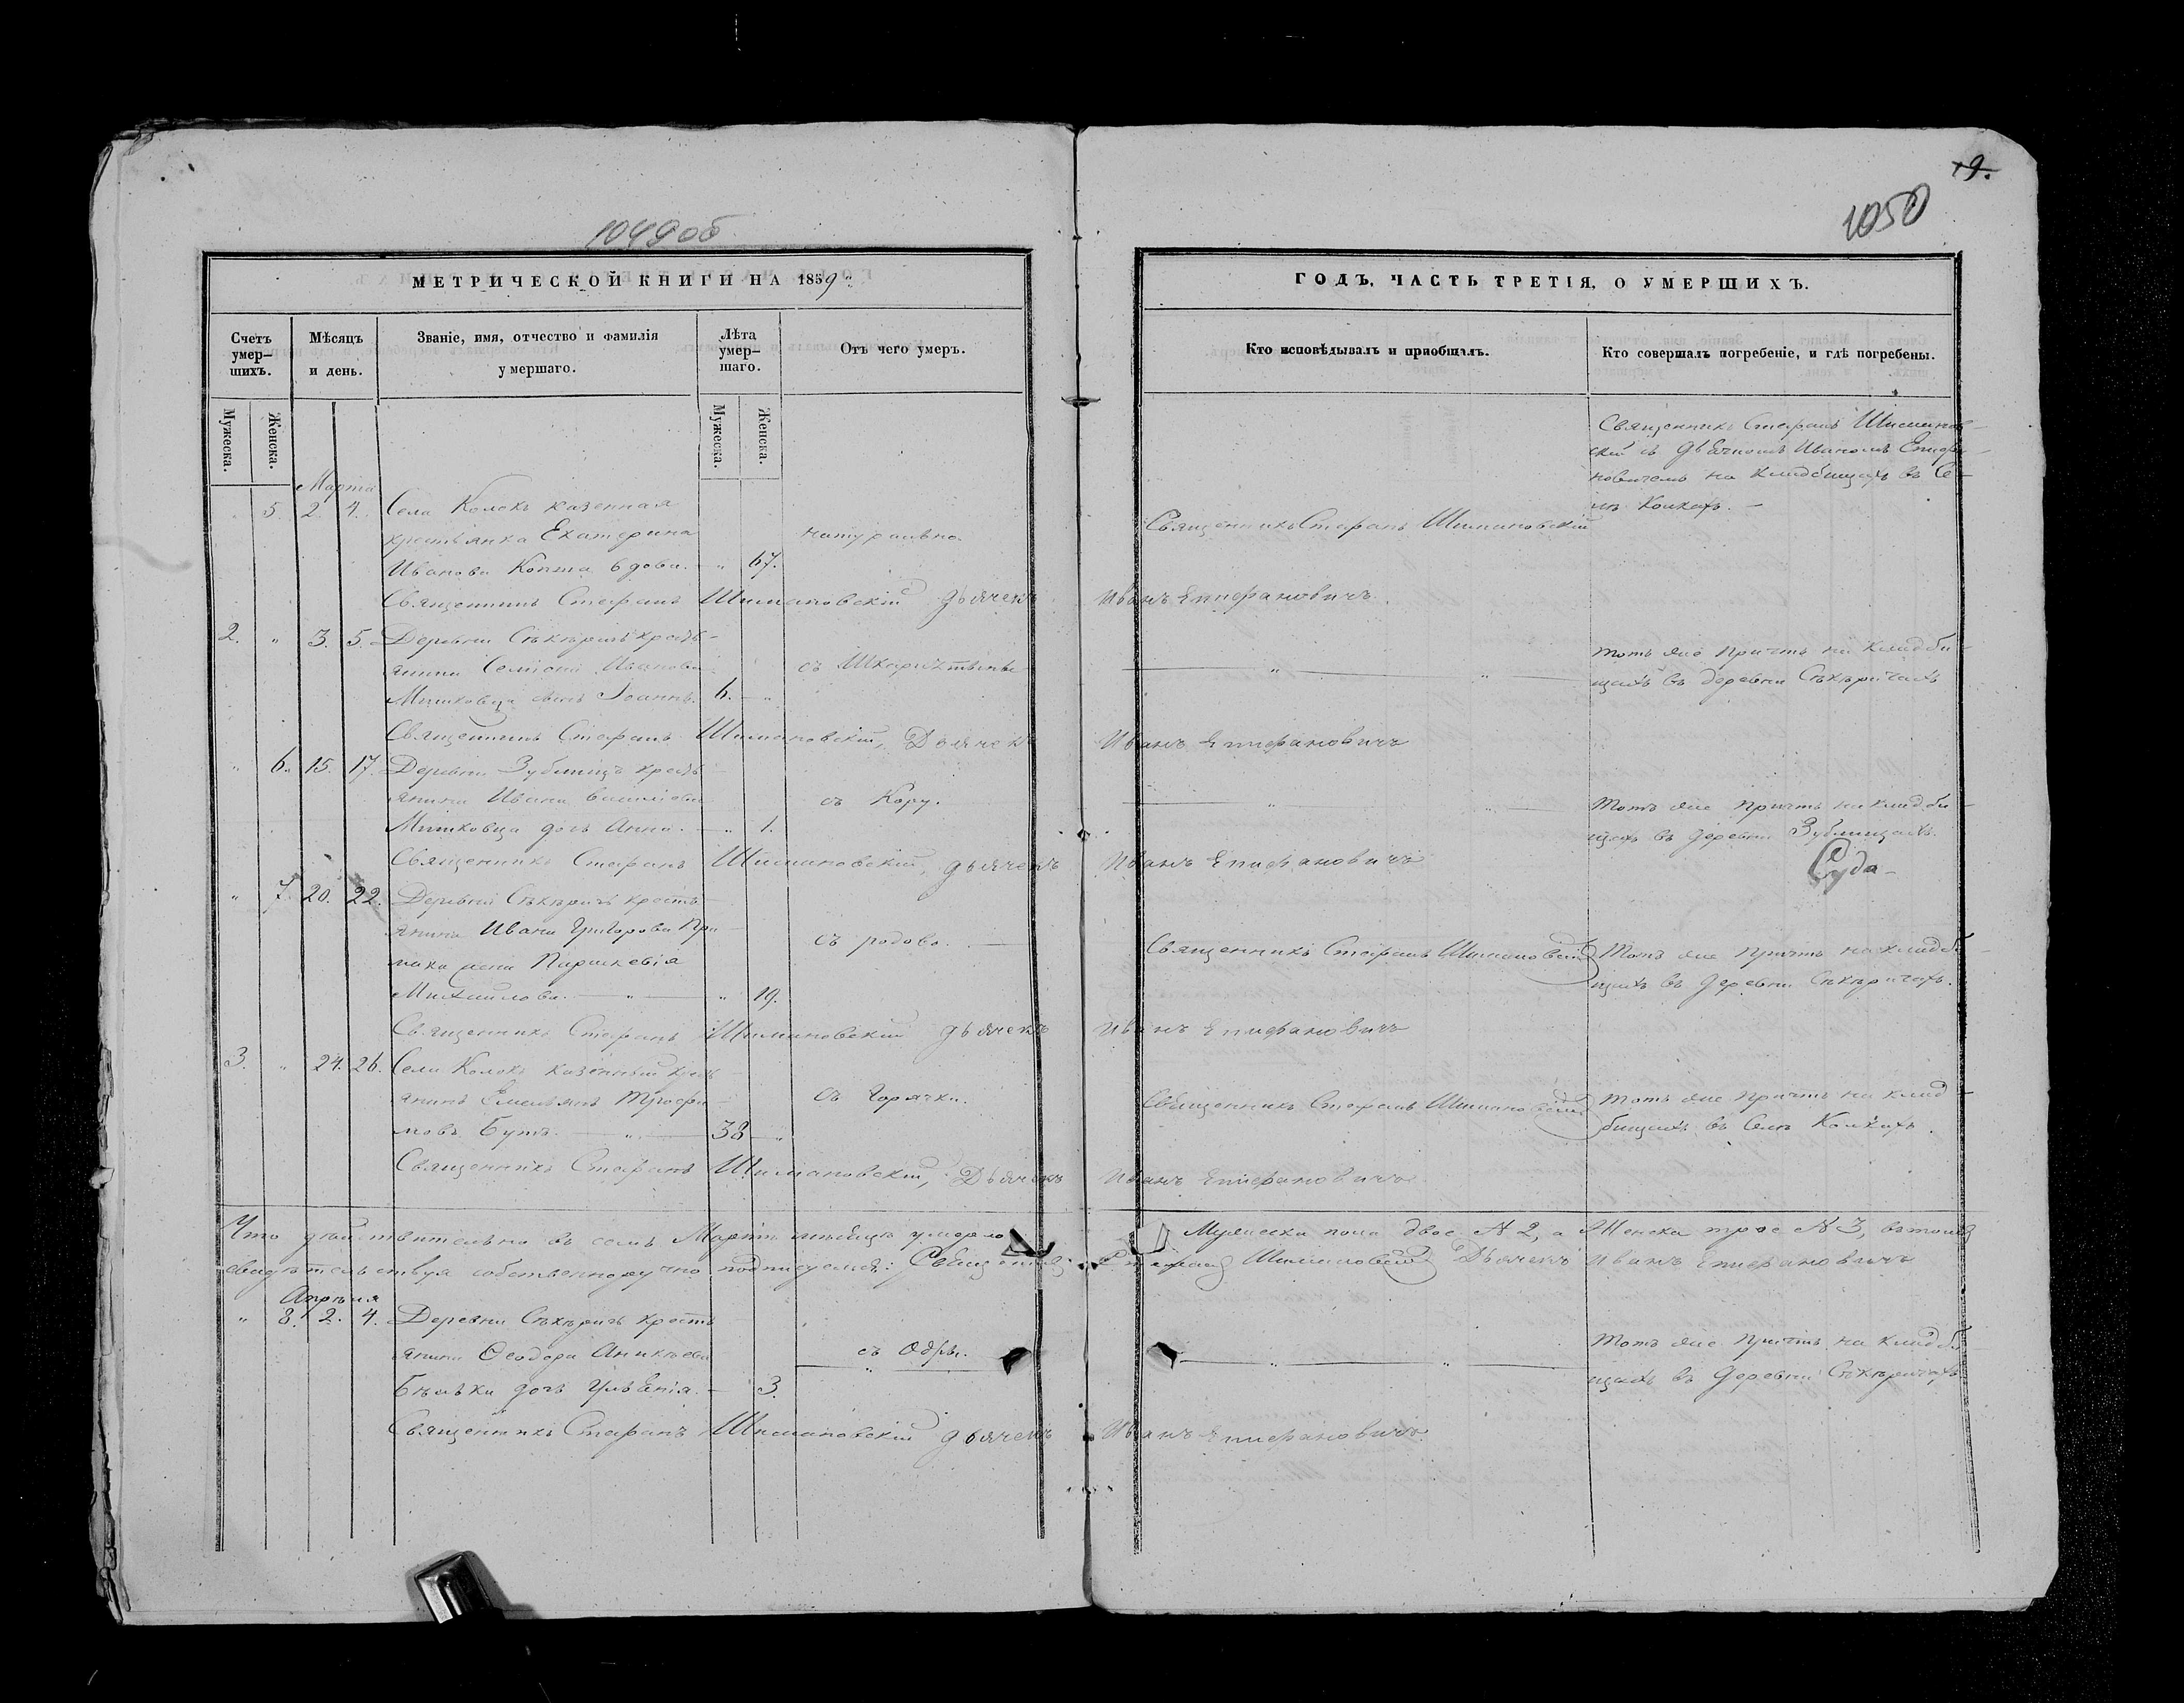 1049об
МЕТРИЧЕСКОЙ КНИГИ НА 1859
Счетъ умер-шихъ.
Мѣсяцъ и день.
Званіе, имя, отчество и фамилія умершаго.
Лѣта умер-шаго.
Отъ чего умеръ.
Мужеска.
Женска.
Мужеска.
Женска.
Марта
5. 2. 4. Села Колокъ казенная
крестьянка Екатерина натурально.
Иванова Копта вдова. " 67.
Священникъ Стефанъ Шимановскій дьячекъ Иванъ Епифановичъ.
2. " 3. 5. Деревни Сѣкѣричъ кресть-
янина Семіона Иванова
Мишковца сынъ Іоаннъ. 6. "
Священникъ Стефанъ Шимановскій, Дьячекъ Иванъ Епифановичъ
" 6. 15. 17. Деревни Зубчищъ кресть-
янина Ивана съ Кору.
Мишковца дочь Анна. " 1.
Священникъ Стефанъ Шимановскій, дьячекъ Иванъ Епифановичъ
" 7. 20. 22. Деревни Сѣкѣричъ кресть-
янина Ивана Григорова При-
мака жена Параскевія съ родово.
Михайлова. " " 19.
Священникъ Стефанъ Шимановскій дьячекъ Иванъ Епифановичъ
3. " 24. 26. Села Колокъ казенный кресть-
янинъ Емельянъ Трофи- Съ Горячки.
мовъ Бутъ. " 38 "
Священникъ Стефанъ Шимановскій, Дьячекъ Иванъ Епифановичъ
Что дѣйствительно въ семъ Мартѣ мѣсяцѣ умерло Мужеска пола двое № 2, а Женска трое № 3, въ томъ
свидѣтельствуя собственноручно подписуемся: Священникъ Стефанъ Шимановскій Дьячекъ Иванъ Епифановичъ
Апрѣля
" 8. 2. 4. Деревни Сѣкѣричъ кресть-
янина Ѳеодора Аникѣева съ Одры.
Бѣлѣки дочь Ульянія. 3.
Священникъ Стефанъ Шимановскій дьячекъ Иванъ Епифановичъ
9.
1050
ГОДЪ, ЧАСТЬ ТРЕТІЯ, О УМЕРШИХЪ.
Кто исповѣдывалъ и пріобщалъ.
Кто совершалъ погребеніе, и гдѣ погребены.
Священникъ Стефанъ Шиманов-
скій съ дьячкомъ Иваномъ Епифа-
новичемъ на кладбищахъ въ Се-
лѣ Колкахъ.
Священникъ Стефанъ Шимановскій
Тотъ же причтъ на кладби-
щахъ въ деревни Сѣкѣричахъ
Тотъ же причтъ на кладби-
щахъ въ деревни Зубчищахъ.
Священникъ Стефанъ Шимановскій
Тотъ же причтъ на кладби-
щахъ въ деревни Сѣкѣричахъ.
Священникъ Стефанъ Шимановскій
Тотъ же причтъ на клад-
бищахъ въ Селѣ Колкахъ.
Тотъ же причтъ на кладби-
щахъ въ деревни Сѣкѣричахъ